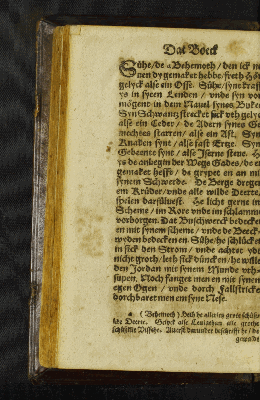 Dat Boeck
Sühe / de a Behemoth / den ick n
nen dy gemaket hebbe / freth Hö
gelyck alse ein Osse. Sühe / syne krafft
ys in synen Lenden / unde syn vor
mögent in dem Navel synes Bukes
Syn Schwantz strecket sick veth gelyck
alse ein Ceder / de Adern synes Ge
mechtes starren / alse ein Ast. Syn
Knaken synt / alse fast Ertze. Syn
Gebeente synt / alse Jserne steve. H
ys de anbegin der Wege Gades / de en
gemaket hefft / de grypet en an mi
synem Schwerde. De Berge dregen
em Krüder / unde alle wilde Deerte
spelen darsülvest. He licht gerne in
Scheme / im Rore unde im schlamm
vorborgen. Dat Buschwerck bedeck
en mit synem scheme / unde de Beeck
wyden bedecken en. Sühe / he schlücket
in sick den Strom / unde achtet yd
nicht groth / leth sick düncken / he wille
den Jordan mit synem Munde uth
süpen. Noch fanget men en mit synen
egen Ogen / unde dorch Fallstricke
dorchbaret men em syne Nese.
a ( Behemoth ) Heth he alle
lyke Deerte. Gelyck alse Leviathan alle grothe
Vissche. beschrifft he / de